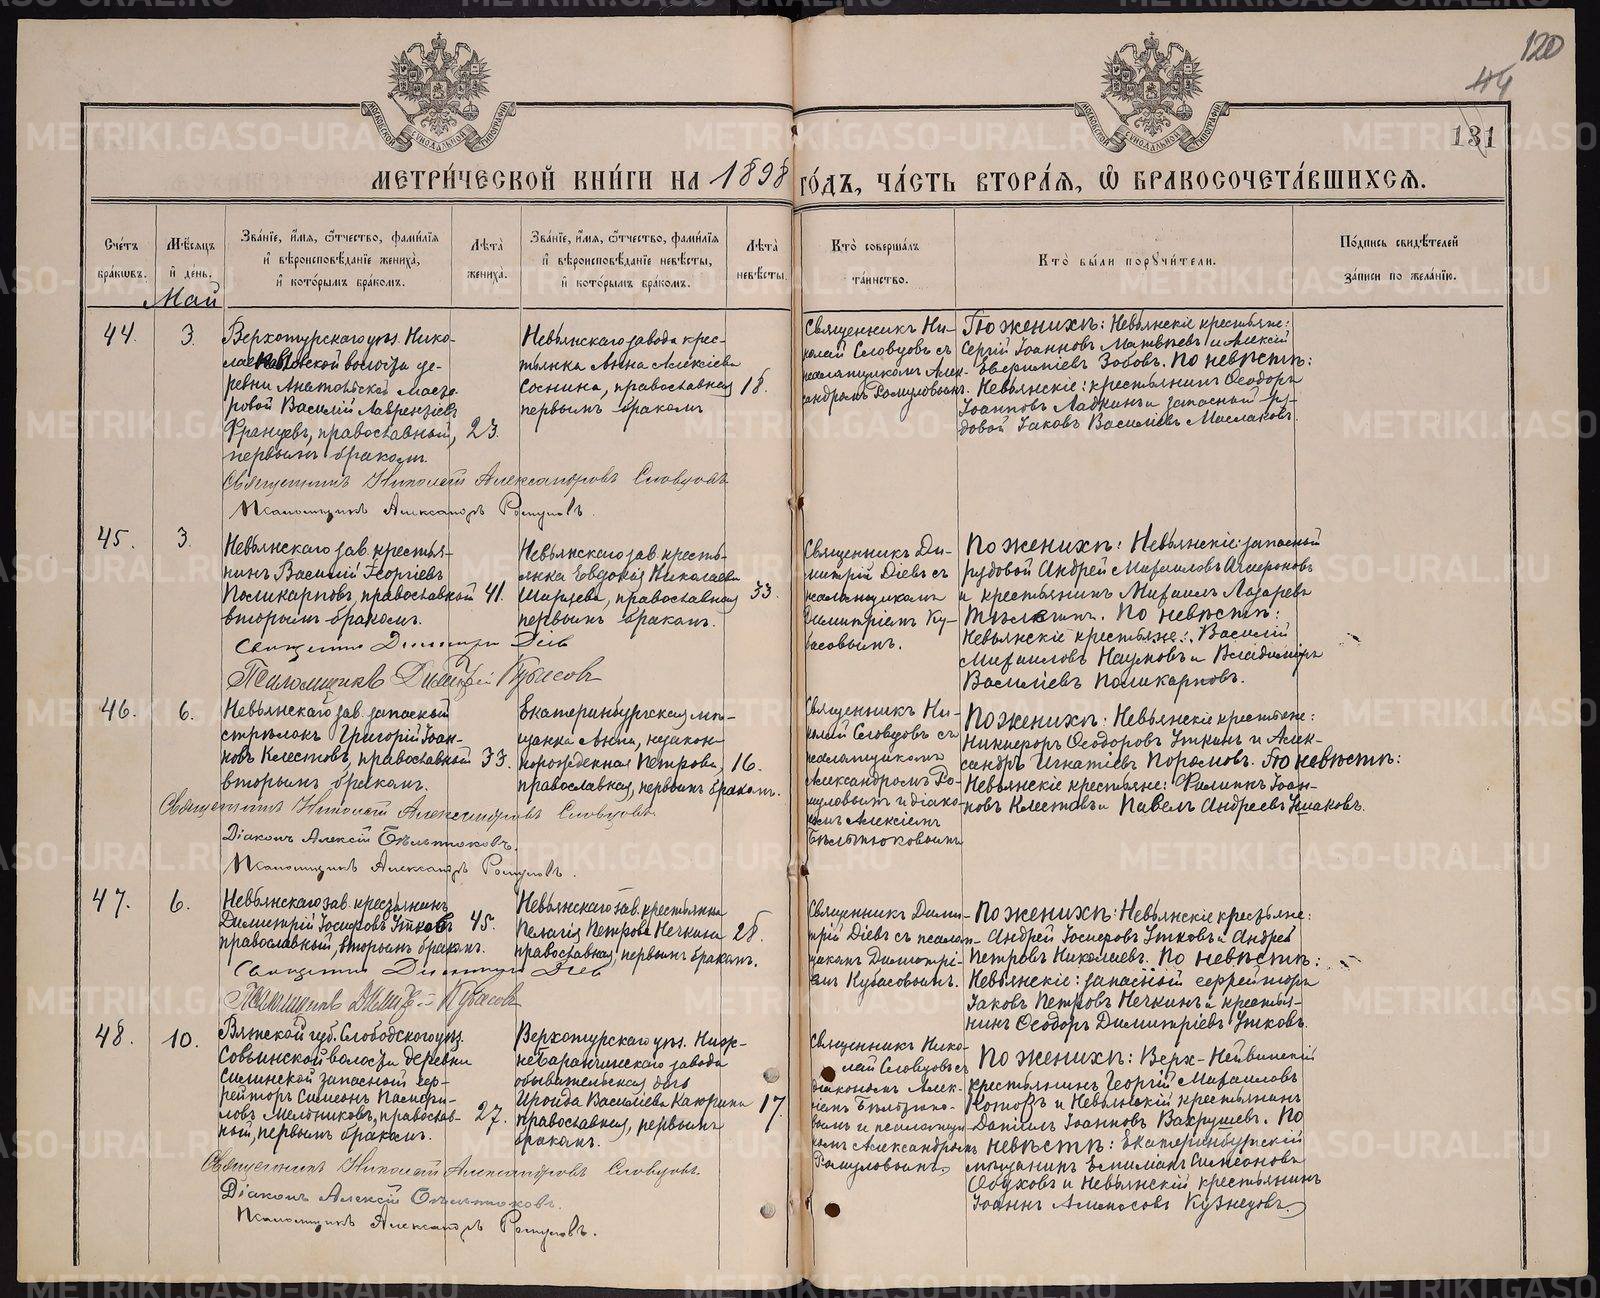 120
44
131
МЕТРИ́ЧЕСКОЙ КНИ́ГИ НА 1898 ГО́ДЪ, ЧА́СТЬ ВТОРА́Я, Ѡ БРАКОСОЧЕТА́ВШИХСЯ.
Сче́тъ бра́ковъ.
Мѣ́сяцъ и́ де́нь.
Зва́нїе, и́мя, ѻ҆́тчество, фами́лїя и́ вѣроисповѣ́данїе жениха̀, и҆ кото́рымъ бра́комъ.
Лѣ́та жениха̀.
Зва́нїе, и́мя, ѻ҆́тчество, фами́лїя и҆ вѣроисповѣ́данїе невѣ́сты, и҆ кото́рымъ бра́комъ.
Лѣ́та невѣ́сты.
Кто̀ соверша́лъ та́инство.
Кто̀ бы́ли поручи́тели.
По́дпись свидѣ́телей за́писи по жела́нїю.
Май
44.
3.
Верхотурскаго уѣз. Нико-
лаепавловской волости де-
ревни Анатольской масте-
ровой Василій Лаврентіевъ
Францевъ, православный,
первымъ бракомъ.
23.
Невьянскаго завода крес-
тьянка Анна Алексіева
Соснина, православная
первымъ бракомъ
18.
Священникъ Ни-
колай Словцовъ съ
псаломщикомъ Алек-
сандромъ Ромуловымъ.
По женихѣ: Невьянскіе крестьяне:
Сергій Іоанновъ Матвѣевъ и Алексій
Зобовъ. По невѣстѣ:
Невьянскіе: крестьянинъ Ѳеодоръ
Іоанновъ Ладкинъ и запасный ря-
довой Іаковъ Василіевъ Маслаковъ.
Священникъ Николай Александровъ Словцовъ
Псаломщикъ Александръ Ромуловъ.
45.
3.
Невьянскаго зав. крестья-
нинъ Василій Георгіевъ
Поликарповъ, православный
вторымъ бракомъ.
41.
Невьянскаго зав. кресть-
янка Евдокія Николаева
православная
первымъ бракомъ.
33.
Священникъ Ди-
митрій Діевъ съ
псаломщикомъ
Димитріемъ Ку-
басовымъ.
По женихѣ: Невьянскіе: запасный
рядовой Андрей Михаиловъ Агафоновъ
и крестьянинъ Михаилъ Лазаревъ
По невѣстѣ:
Невьянскіе крестьяне: Василій
Михаиловъ Наумовъ и Владиміръ
Василіевъ Поликарповъ.
Священникъ Димитрій Діевъ
Псаломщикъ Димитрій Кубасовъ
46.
6.
Невьянскаго зав. запасный
стрѣлокъ Григорій Іоан-
новъ Клестовъ, православный
вторымъ бракомъ.
33.
Екатеринбургская мѣ-
щанка Анна, незакон-
норожденная Петрова,
православная, первымъ бракомъ.
16.
Священникъ Ни-
колай Словцовъ съ
псаломщикомъ
Александромъ Ро-
муловымъ и діако-
номъ Алексіемъ
Бѣльтюковымъ
По женихѣ: Невьянскіе крестьяне:
Никифоръ Ѳеодоровъ Уткинъ и Алек-
сандръ Игнатіевъ Поромовъ. По невѣстѣ:
Невьянскіе крестьяне: Филиппъ Іоан-
новъ Клестовъ и Павелъ Андреевъ
Священникъ Николай Александровъ Словцовъ
Діаконъ Алексій Бѣльтюковъ.
Псаломщикъ Александръ Ромуловъ.
47.
6.
Невьянскаго зав. крестьянинъ
Димитрій Іосифовъ Утковъ
православный, вторымъ бракомъ.
45.
Невьянскаго зав. крестьянка
Пелагія Петрова Нечкина
православная, первымъ бракомъ.
28.
Священникъ Дими-
трій Діевъ съ псалом-
щикомъ Димитрі-
емъ Кубасовымъ.
По женихѣ: Невьянскіе крестьяне:
Андрей Іосифовъ Утковъ и Андрей
Петровъ Николаевъ. По невѣстѣ:
Невьянскіе: запасной ефрейторъ
Іаковъ Петровъ Нечкинъ и крестья-
нинъ Ѳеодоръ Димитріевъ Утковъ.
Священникъ Димитрій Діевъ
Псаломщикъ Димитрій Кубасовъ
48.
10.
Вятской губ. Слободского уѣз.
Совьинской волости деревни
Силинской запасный еф-
рейторъ Симеонъ Памфи-
ловъ Мельниковъ, православ-
ный, первымъ бракомъ.
27.
Верхотурскаго уѣз. Ниж-
небаранчинскаго завода
обывательская дочь
Ироида Василіева Каюрина
православная, первымъ
бракомъ.
17.
Священникъ Нико-
лай Словцовъ съ
діакономъ Алек-
сіемъ Бѣльтюко-
вымъ и псаломщи-
комъ Александромъ
Ромуловымъ
По женихѣ: Верх-Нейвинскій
крестьянинъ Георгій Михаиловъ
Котовъ и Невьянскій крестьянинъ
Даніилъ Іоанновъ Вахрушевъ. По
невѣстѣ: Екатеринбургскій
мѣщанинъ Емиліанъ Симеоновъ
Обуховъ и Невьянскій крестьянинъ
Іоаннъ Аммосовъ Кузнецовъ.
Священникъ Николай Александровъ Словцовъ.
Діаконъ Алексій Бѣльтюковъ.
Псаломщикъ Александръ Ромуловъ.
METRIKI.GASO-URAL.RU